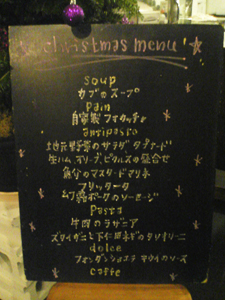 christmas menu
soup
カブのスープ
pain
自家製フォカッチャ
antipasto
地元野菜のサラダ タプナード
生ハム、オリーブ、ピクルスの盛合せ
魚介のマスタードマリネ
フリッタータ
幻霜ポークのソーセージ
pasta
牛肉のラザニア
ズワイガニと下仁田ネギのタリオリーニ
dolce
フォンダンショコラ キウイのソース
caffe